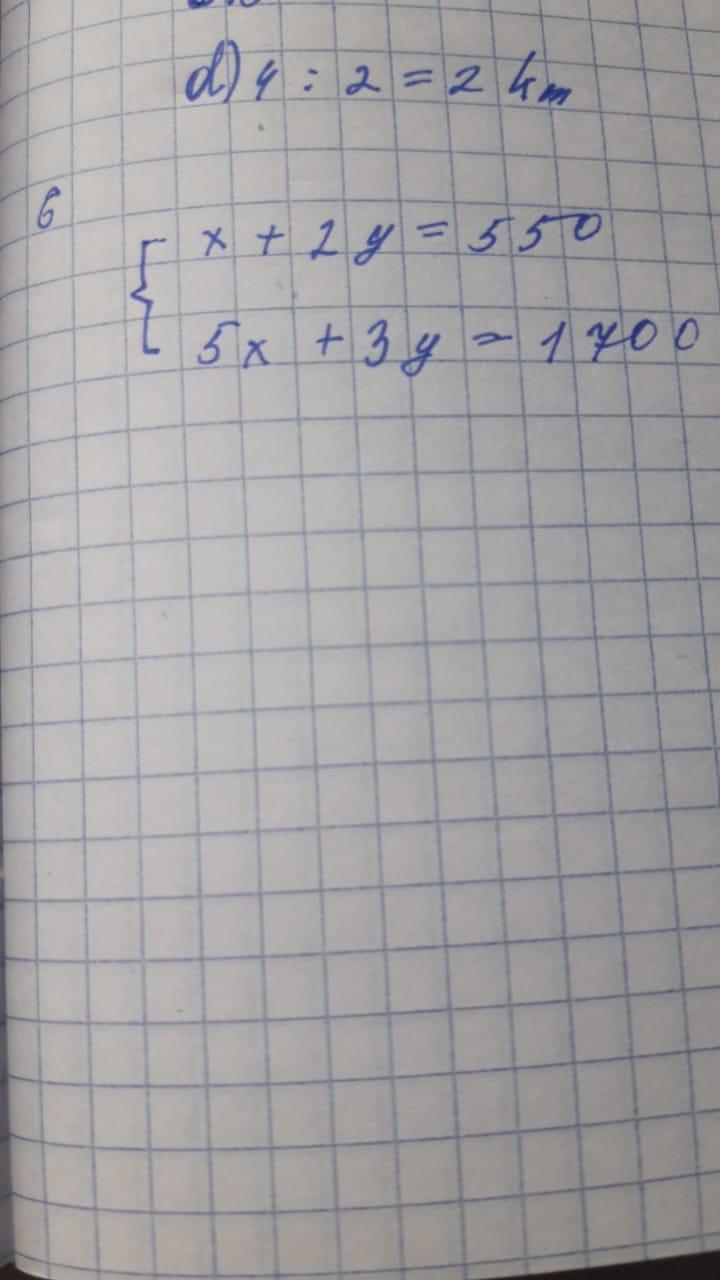 d) 4 : 2 = 2 km
6
x + 2y = 550
5x + 3y = 1700